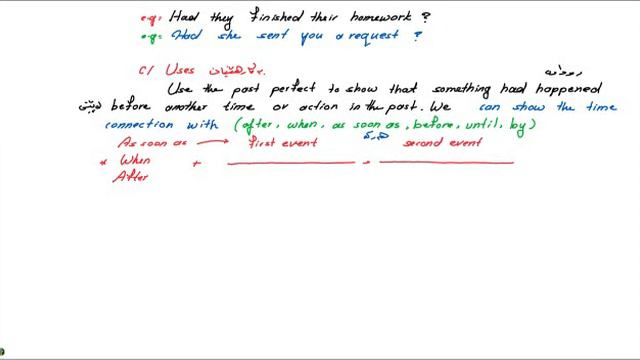 e.g: Had they finished their homework ?
e.g: Had she sent you a request ?
C/ Uses
Use the past perfect to show that something had happened
before another time or action in the past. We can show the time
connection with (after, when, as soon as, before, until, by)
As soon as → first event second event
* When + ,
After